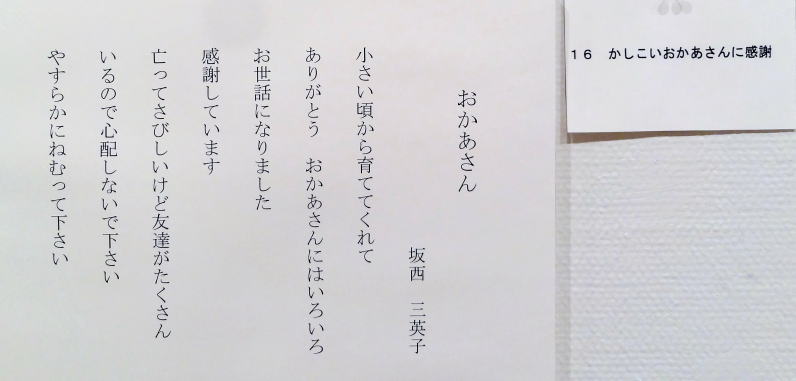 おかあさん
坂西　三英子
小さい頃から育ててくれて
ありがとう　おかあさんにはいろいろ
お世話になりました
感謝しています
亡ってさびしいけど友達がたくさん
いるので心配しないで下さい
やすらかにねむって下さい
16　かしこいおかあさんに感謝